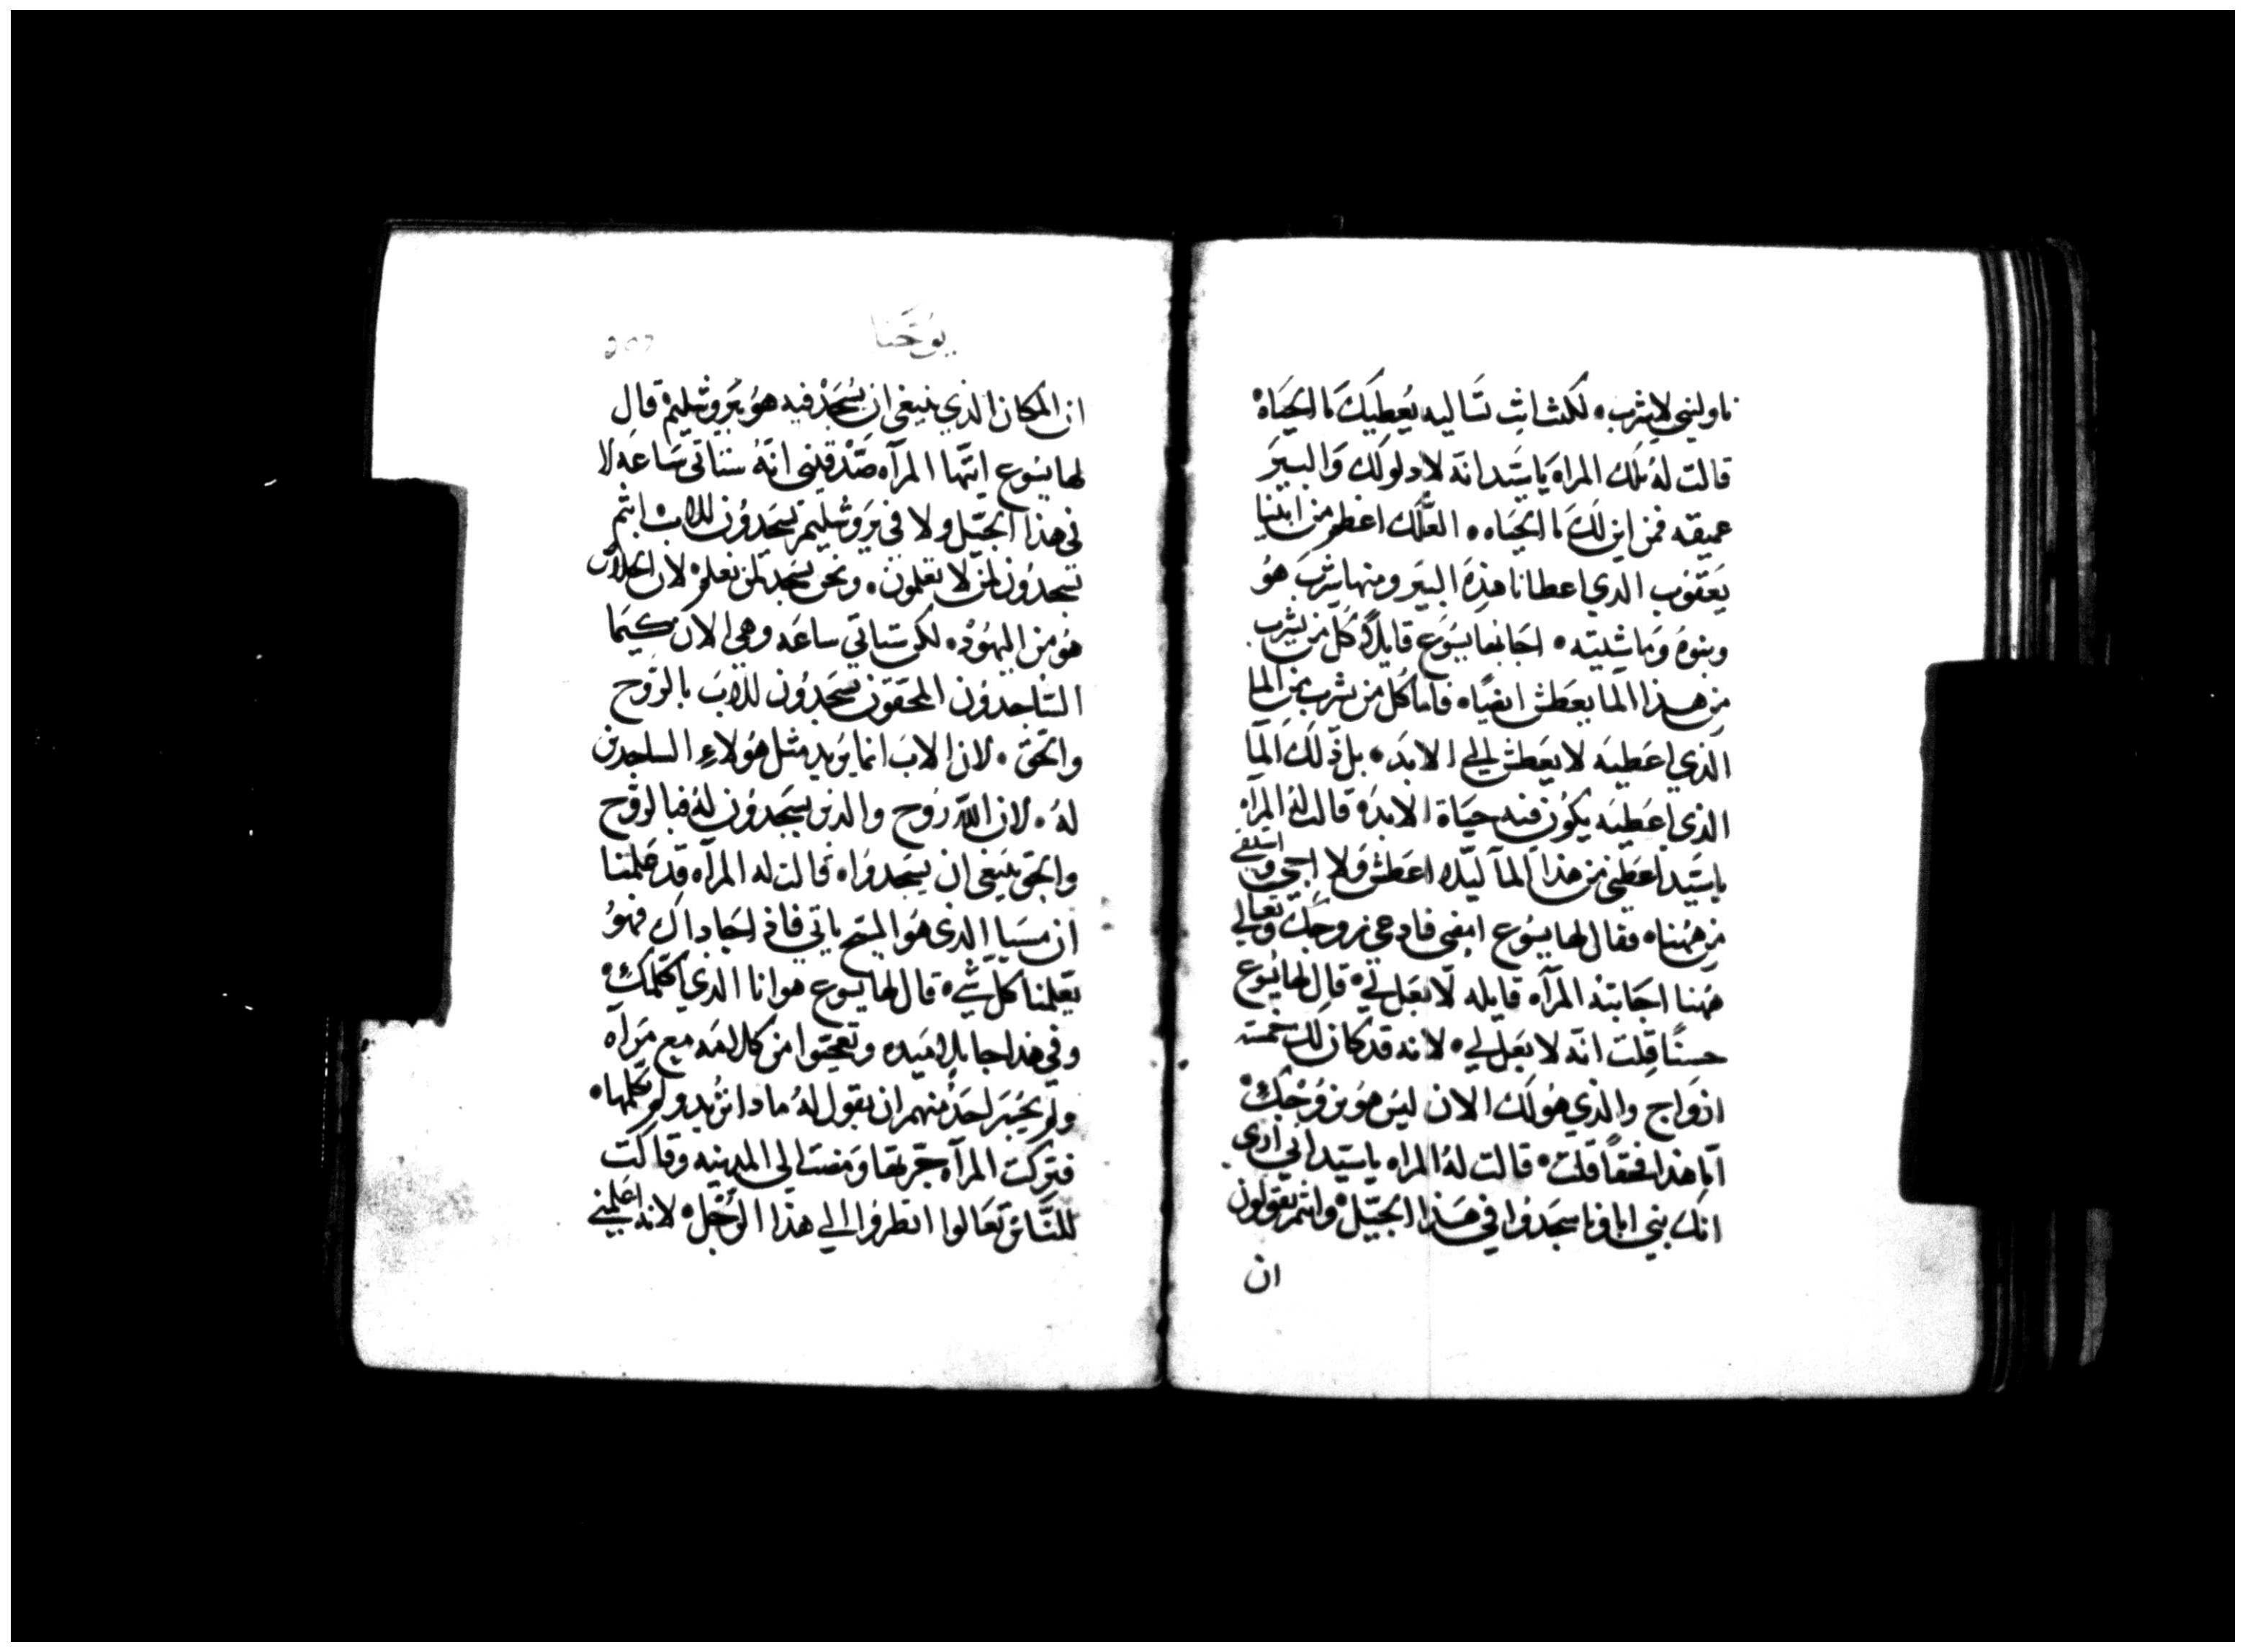 ناوليني لاشرب، لكنت انتِ تَساليه يُعطيكَ ما الحَيَاه
قالت لهُ تلك المراه يَا سَيّد انهَ لا دلو لك وَالبيرَ
عميقه فمن اين لكَ ما الحيَاه، العلّك اعظم من ابينا
يَعَقوُب الدي اعطانا هذِهِ البيَر ومنها يشرَبَ هوُ
وبنوهُ وَماشيتِه، اجَابها يسُوَع قايلاً كُلّ من يشرب
من هذا الما يعَطش ايضًا، فاما كُل من يشرب من الما
الذي اعَطيَه لا يعَطش الي الابدَ، بل ذلَك المآ
الذي اعَطيَه يكوُن فيه حيَاة الابدَ، قالت لهُ المرآه
يا سَيّد اعَطيني من هذا المآ ليلا اعَطش وَلا اجي واستقي
من هٰهُنا، فقال لها يسُوع امضي فادعي زوجكَ وتعَالي
هَهنا اجَابتهُ المرآه قايله لا بعَل لي، قال لها يسُوع
حسَنًا قلت انهَ لا بعَل لي، لانه قد كان لك خمسَة
ازوَاج والذي هوُ لَك الان ليسَ هوُ زوُجَك
اما هذا فحقاً قلت، قالت لهُ المراه يا سَيد اني اري
انك نبي اباونا سجَدوُا في هَذا الجبَل، وانتم تقوُلون
ان
يوُحَنا
ان المكان الذي ينبغي ان يُسُجَدْ فيه هوُ يَروشليم، قال
لها يسُوع ايتّها المرآه صَدّقيني انهُ ستاتي سَاعَه لا
في هذا الجبَّل ولا في يَروشليم تسَجَدوُن للاب، انتم
تسجَدوُن لمن لا تعَلموُن، ونحن نسَجد لمن نعَلم، لان الخلاصَ
هوُ من اليهوُد، لكن ستَاتي ساعَه وهي الان كيمَا
السَاجدوُن المحَققون يسَجدوُن للابَ بالروّح
والحَق، لان الابَ انما يرُيد مثل هوُلاءِ السَاجدين
لهُ، لان اللهَ روُح والدين يسَجدَوُن لهُ فبالروّح
والحَق ينبَغي ان يسَجدوُا، قالت له المرآه قد عَلمنا
ان مسَيا الذي هوُ المسيح ياتي فاذا جَا داك فهوُ
يعَلمنا كل شي، قال لها يسُوع هو انا الذي اكَلمكِ،
وفي هذا جا تلاميده وتعَجبوا من كلامَه معَ مَرَآه
ولم يخبَر احَدٌ منهم ان يقول لهُ مادا ترُيد ولم تكَلمها،
فترَكت المرآه جَرتها وَمضَت الي المدينَه وقالَت
للنّاسَ تعَالوا انظروُا الي هذا الرجَل، لانه اعَلمني